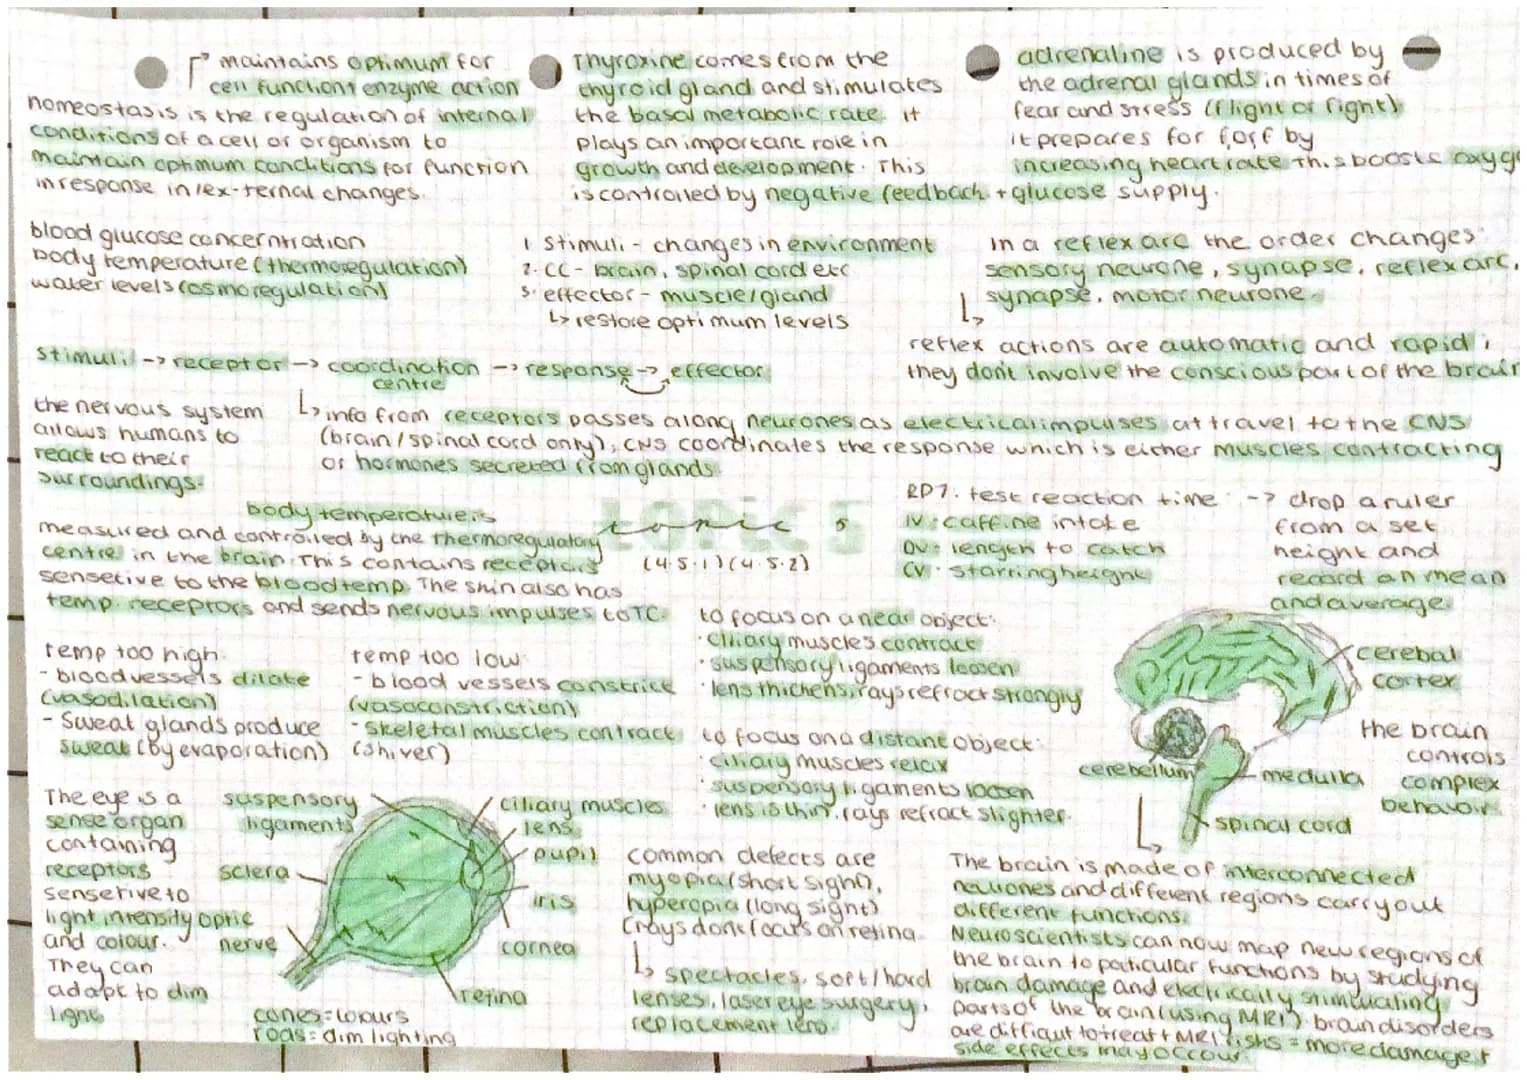 maintains optimum for
cell function + enzyme action
homeostasis is the regulation of internal
conditions of a cell or organism to
maintain optimum conditions for function
in response in/ex-ternal changes.
Thyroxine comes from the
thyroid gland and stimulates
the basal metabolic rate. it
plays an important role in
growth and development. This
is controlled by negative feedback
adrenaline is produced by
the adrenal glands in times of
fear and stress (flight or fight)
it prepares for f or f by
increasing heart rate this boosts oxyg
+ glucose supply.
blood glucose concerntration
body temperature (thermoregulation)
water levels (osmoregulation)
1 stimuli - changes in environment
2. CC - brain, spinal cord etc
3. effector - muscle/gland
↳ restore optimum levels
in a reflex arc the order changes:
sensory neurone, synapse, reflex arc,
synapse, motor neurone
reflex actions are automatic and rapid;
they don't involve the conscious part of the brain
stimuli -> receptor -> coordination -> response -> effector
centre
the nervous system
allows humans to
react to their
surroundings.
↳ info from receptors passes along neurones as electrical impulses at travel to the CNS
(brain/spinal cord only), CNS coordinates the response which is either muscles contracting
or hormones secreted from glands
topic 5
topic 5
(4.5.1) (4.5.2)
body temperature is
measured and controlled by the thermoregulatory
centre in the brain. This contains receptors
sensetive to the blood temp. The skin also has
temp. receptors and sends nervous impulses to TC.
RP7. test reaction time: -> drop a ruler
IV: caffine intake
DV: length to catch
CV: starring height
from a set
height and
record an mean
and average.
temp too high:
- blood vessels dilate
(vasodilation)
- Sweat glands produce
sweat (by evaporation)
temp too low:
- blood vessels constrict
(vasoconstriction)
- skeletal muscles contract
(shiver)
to focus on a near object:
· ciliary muscles contract
· suspensory ligaments loosen
· lens thickens, rays refract strongly
to focus on a distant object:
· ciliary muscles relax
· suspensory ligaments loosen
· lens is thin, rays refract slighter.
cerebal
cortex
cerebellum
medulla
spinal cord
the brain
controls
complex
behavoir.
The eye is a
sense organ
containing
receptors
sensetive to
light intensity
and colour.
They can
adapt to dim
light
suspensory
ligaments
sclera
optic
nerve
ciliary muscles
lens
pupil
iris
cornea
retina
cones = colours
rods = dim lighting
common defects are
myopia (short sight),
hyperopia (long sight)
(rays dont focus on retina.
↳ spectacles, soft/hard
lenses, laser eye surgery,
replacement lens.
The brain is made of interconnected
neurones and different regions carry out
different functions.
Neuroscientists can now map new regions of
the brain to paticular functions by studying
brain damage and electrically stimulating
parts of the brain (using MRI). brain disorders
are difficult to treat + MRI = more damage +
side effects may occour.